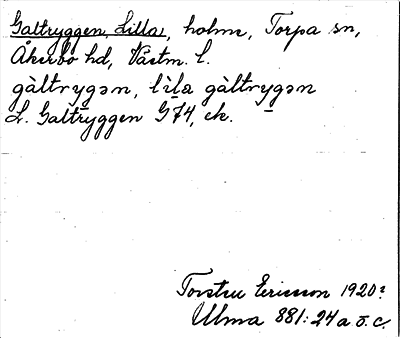 Galtryggen, Lilla, holme, Torpa sn,
Åkerbo hd, Västm. l.
gàltrygən, lìla gàltrygən
L. Galtryggen G74, ek.
Torsten Ericsson 1920?
Ulma 881:24a o. c.